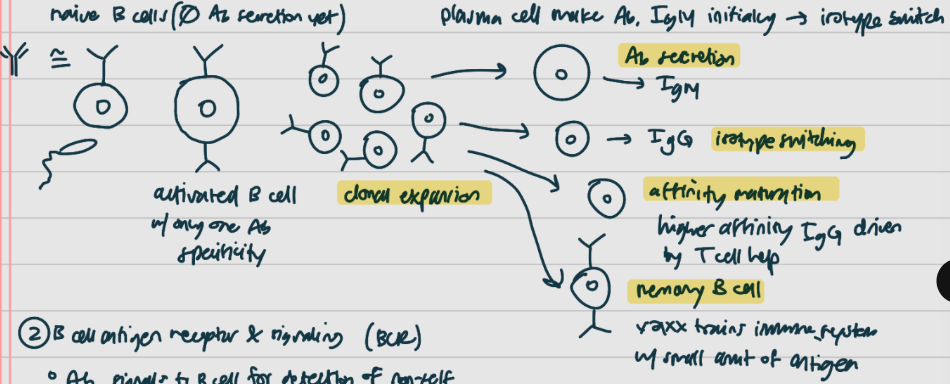 naive B cells (∅ Ab secretion yet)
plasma cell make Ab, IgM initially → isotype switch
≅
Ab secretion
→ IgM
→ IgG isotype switching
activated B cell
w/ only one Ab
specificity
clonal expansion
affinity maturation
higher affinity IgG driven
by T cell help
memory B cell
vaxx trains immune system
w/ small amt of antigen
② B cell antigen receptor & signaling (BCR)
° Ab signals to B cell for detection of non-self